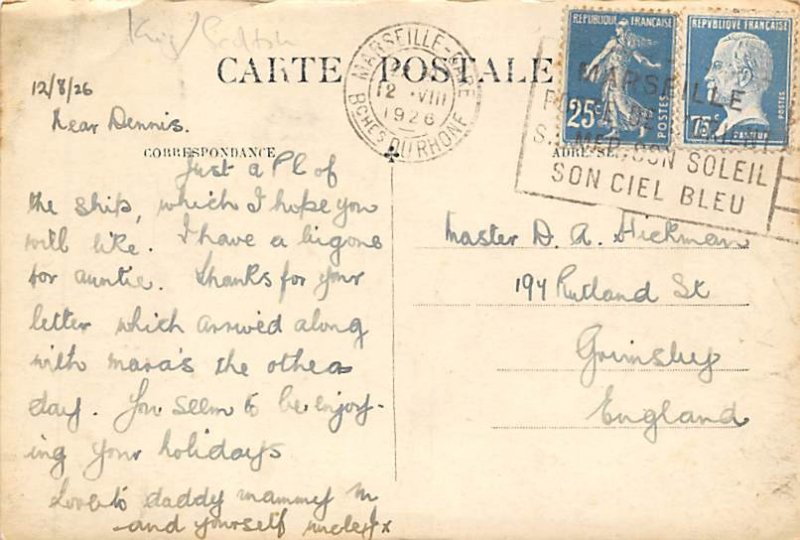 CARTE POSTALE
MARSEILLE-GARE
12 VIII
1926
BCHES DU RHONE
REPUBLIQUE FRANÇAISE
25c
POSTES
REPVBLIQVE FRANÇAISE
75c
POSTES
PASTEUR
MARSEILLE
SON SOLEIL
SON CIEL BLEU
12/8/26
Dear Dennis.
CORRESPONDANCE
ADRESSE
Just a P.C of
the ship, which I hope you
will like. I have a big one
for auntie. Thanks for your
letter which arrived along
with mama's the other
day. You seem to be enjoy-
ing your holidays
Love to daddy mammy
and yourself
Master D. A. Hickman
194 Rutland St
Grimsby
England